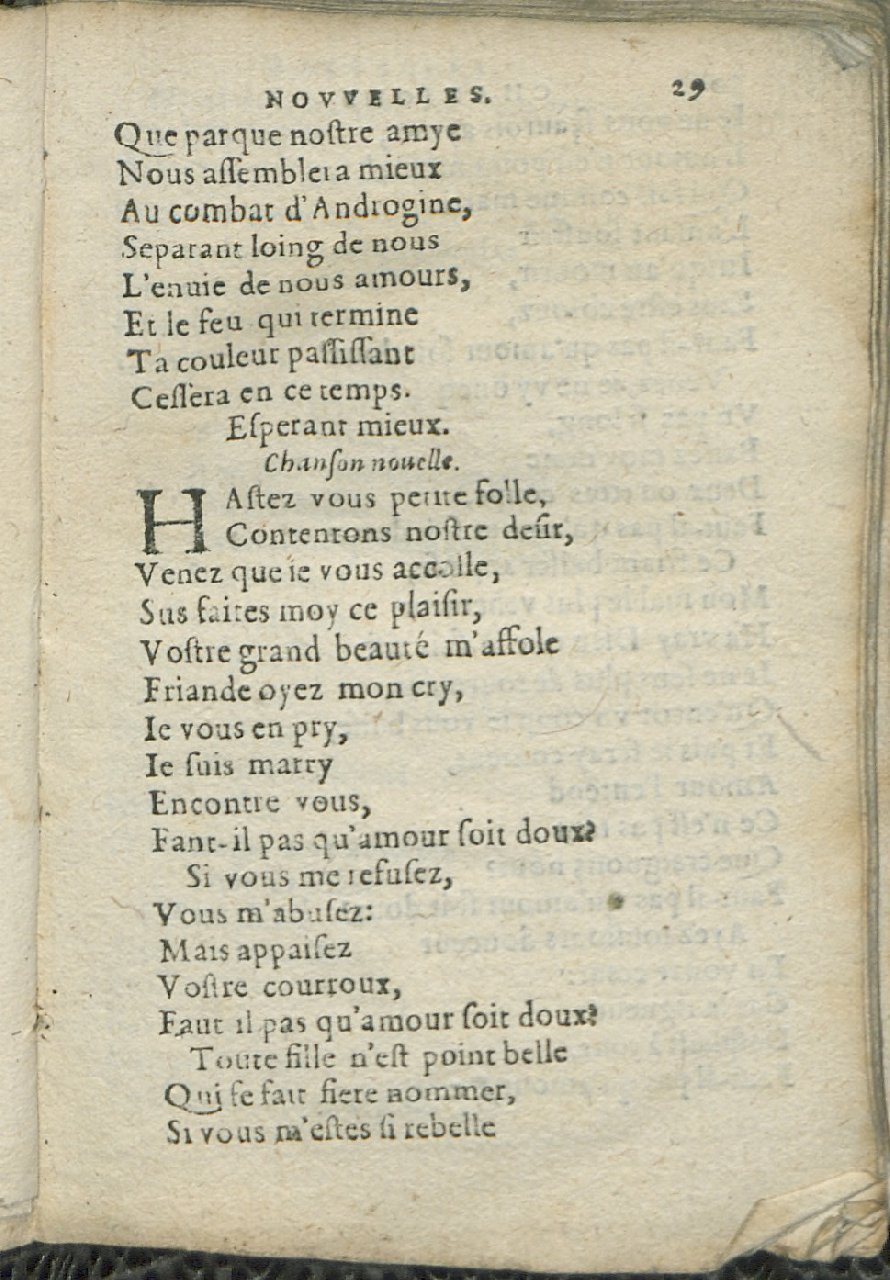 NOVVELLES. 29
Que parque nostre amye
Nous assemblera mieux
Au combat d'Androgine,
Separant loing de nous
L'enuie de nous amours,
Et le feu qui termine
Ta couleur passissant
Cessera en ce temps.
Esperant mieux.
Chanson nouelle.
HAstez vous petite folle,
Contentons nostre desir,
Venez que ie vous accolle,
Sus faites moy ce plaisir,
Vostre grand beauté m'affole
Friande oyez mon cry,
Ie vous en pry,
Ie suis marry
Encontre vous,
Fant-il pas qu'amour soit doux?
Si vous me refusez,
Vous m'abusez:
Mais appaisez
Vostre courroux,
Faut il pas qu'amour soit doux?
Toute fille n'est point belle
Qui se fait fiere nommer,
Si vous m'estes si rebelle